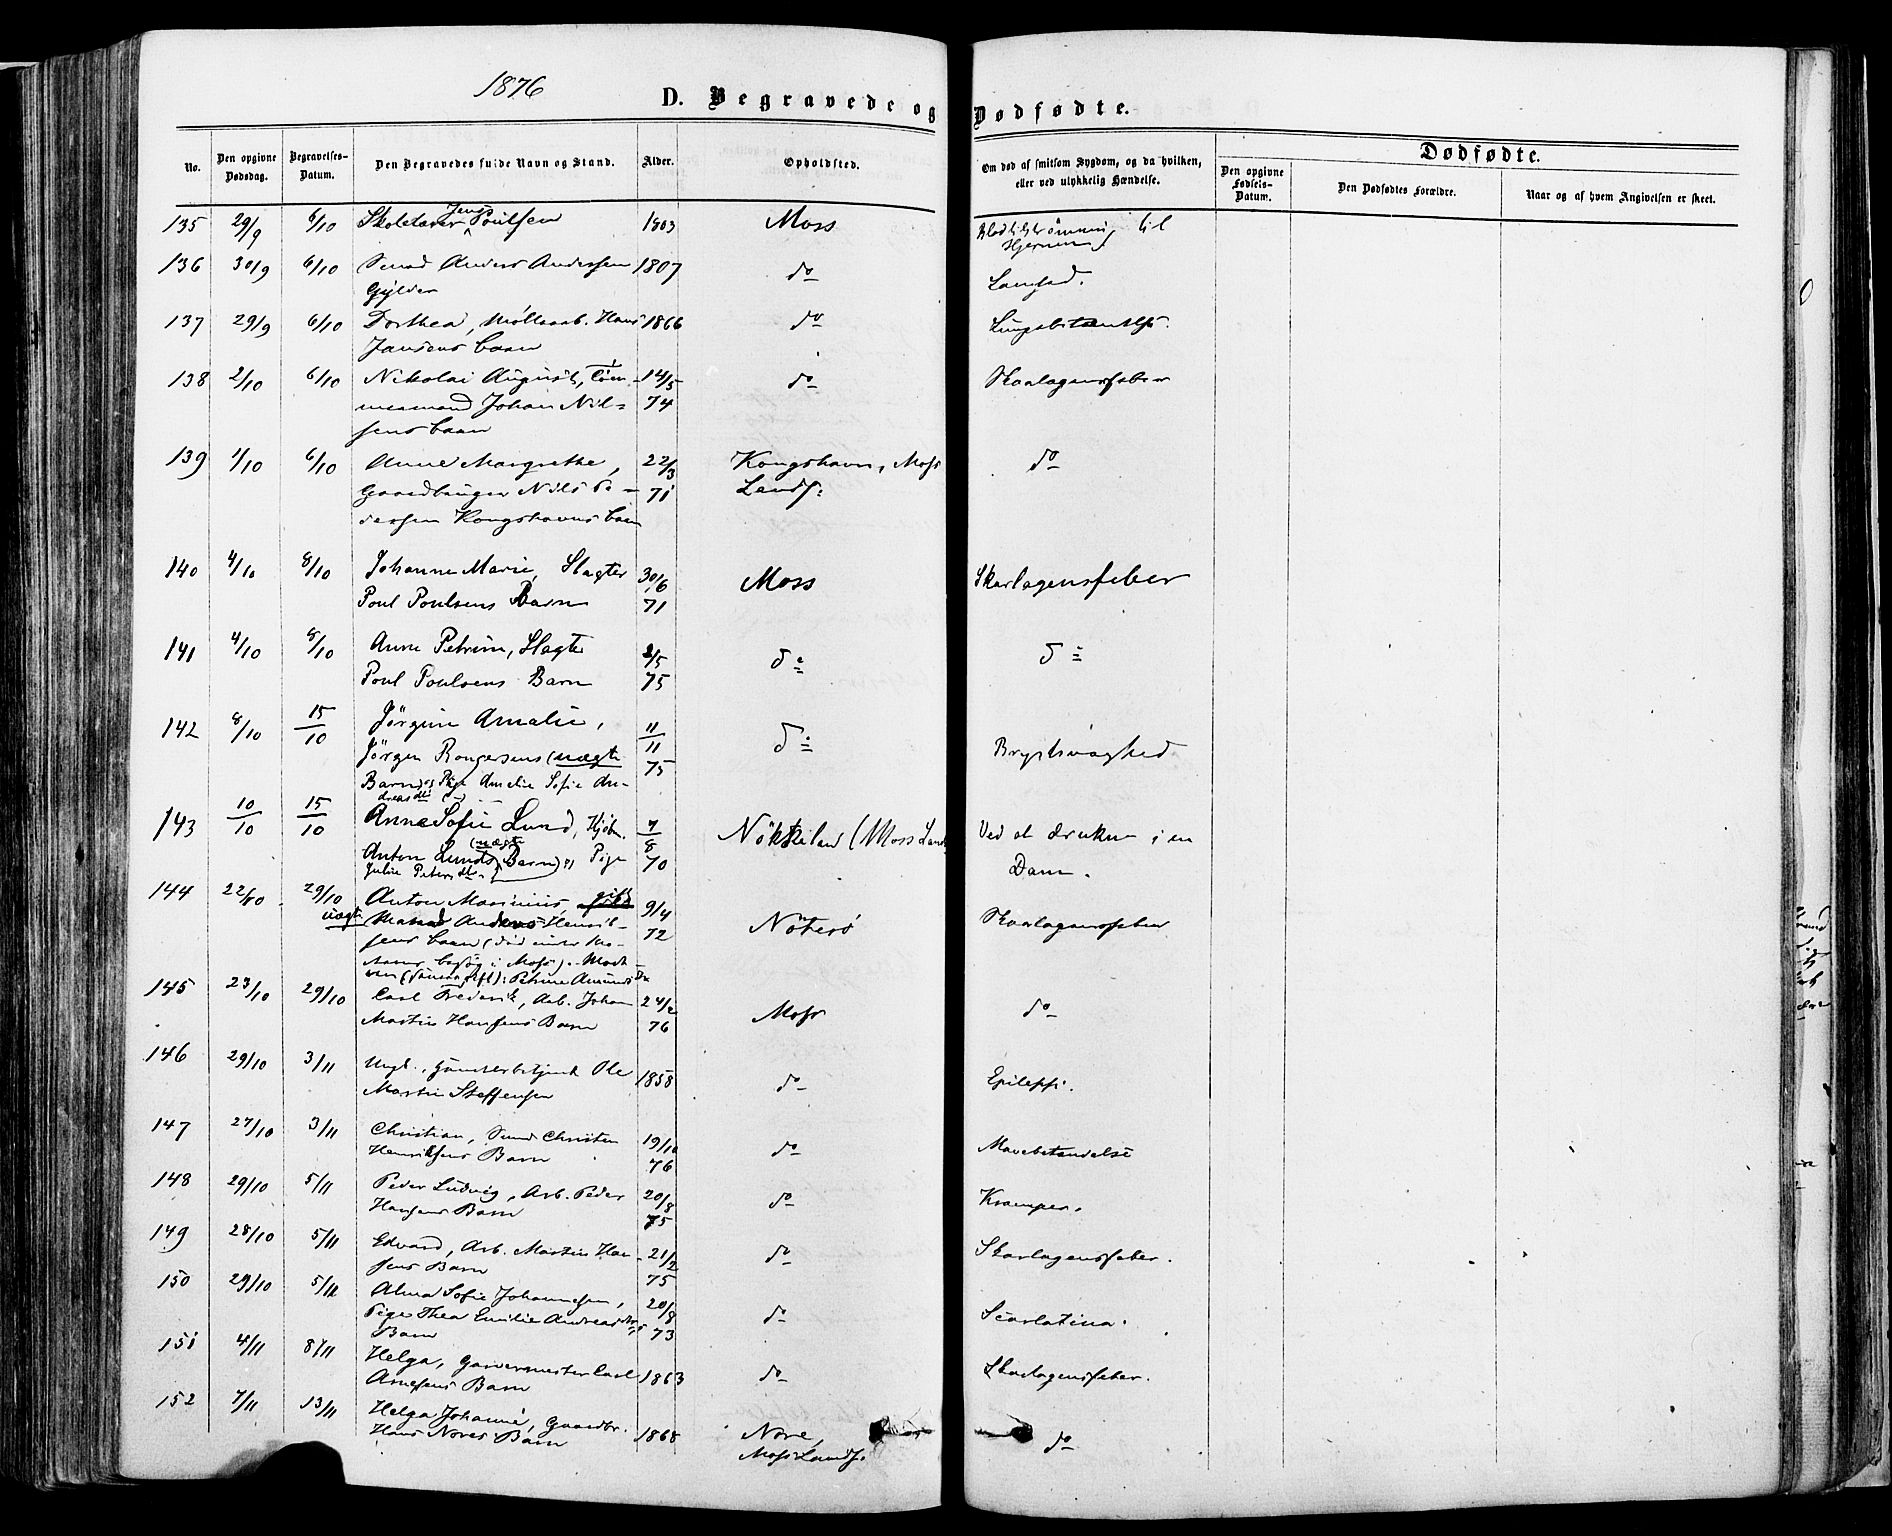 1876
D. Begravede og Dødfødte.
No. Den opgivne Dødsdag. Begravelses-Datum. Den Begravedes fulde Navn og Stand. Alder. Opholdsted. Om død af smitsom Sygdom, og da hvilken, eller ved ulykkelig Hændelse.
Dødfødte.
Den opgivne Fødsels-Datum. Den Dødfødtes Forældre. Naar og af hvem Angivelsen er skeet.
135 29/9 6/10 Skolelærer Jens Poulsen 1803 Moss Blodtilstrømning til
Hjernen
136 30/9 6/10 Smed Anders Andersen 1807 do
Gylder
137 29/9 6/10 Dorthea, Møllearb. Hans 1866 do Lungebetændelse.
Jansens barn
138 2/10 6/10 Nikolai August, Tøm- 14/5 do Skarlagensfeber
mermand Johan Nil- 74
sens barn
139 1/10 6/10 Anne Margrethe, 22/3 Kongshavn, Moss do
Gaardbruger Nils Pe- 71 Lands:
dersen Kongshavns barn
140 4/10 8/10 Johanne Marie, Slagter 30/6 Moss Skarlagensfeber
Poul Poulsens Barn 71
141 4/10 8/10 Anne Petrine, Slagter 2/5 do do
Poul Poulsens Barn 75
142 8/10 15/10 Jørgine Amalie, 11/11 do Brystsvaghed
Jørgen (uægte 75
Barn) og Pige Amelie Sofie An-
dreasdtr
143 10/10 15/10 Anne Sofie Lund, Kjøbm. 7/8 (Moss Lands Ved at drukne i en
Anton Lunds (uægte Barn) og Pige 70 Dam.
Julie Petersdtr.
144 22/10 29/10 Anton Marinius, 9/4 Nøterø Skarlagensfeber
uægte Matros Anders Henrik- 72
sens barn (død under
besøg i Moss). Mod-
eren : Petrine
145 23/10 29/10 Carl Frederik, Arb. Johan 24/2 Moss do
Martin Hansens Barn 76
146 29/10 3/11 Ungk., Ole 1858 do Epilepsi.
Martin Steffensen
147 27/10 3/11 Christian, Smed Christen 19/10 do Mavebetændelse
Henriksens Barn 76
148 29/10 5/11 Peder Ludvig, Arb. Peder 20/8 do Kramper.
Hansens Barn 75
149 28/10 5/11 Edvard, Arb. Martin Han- 21/2 do Skarlagensfeber.
sens Barn 75
150 29/10 5/11 Alma Sofie Johannesen, 20/8 do Scarlatina.
Pige Thea Emilie Andreasdtrs 73
Barn
151 4/11 8/11 Helga, Garvermester Carl 1863 do Skarlagensfeber.
Arnesens Barn
152 7/11 13/11 Helga Johanne, Gaardbr. 1868 Nore, do
Hans Nores Barn Moss Lands.